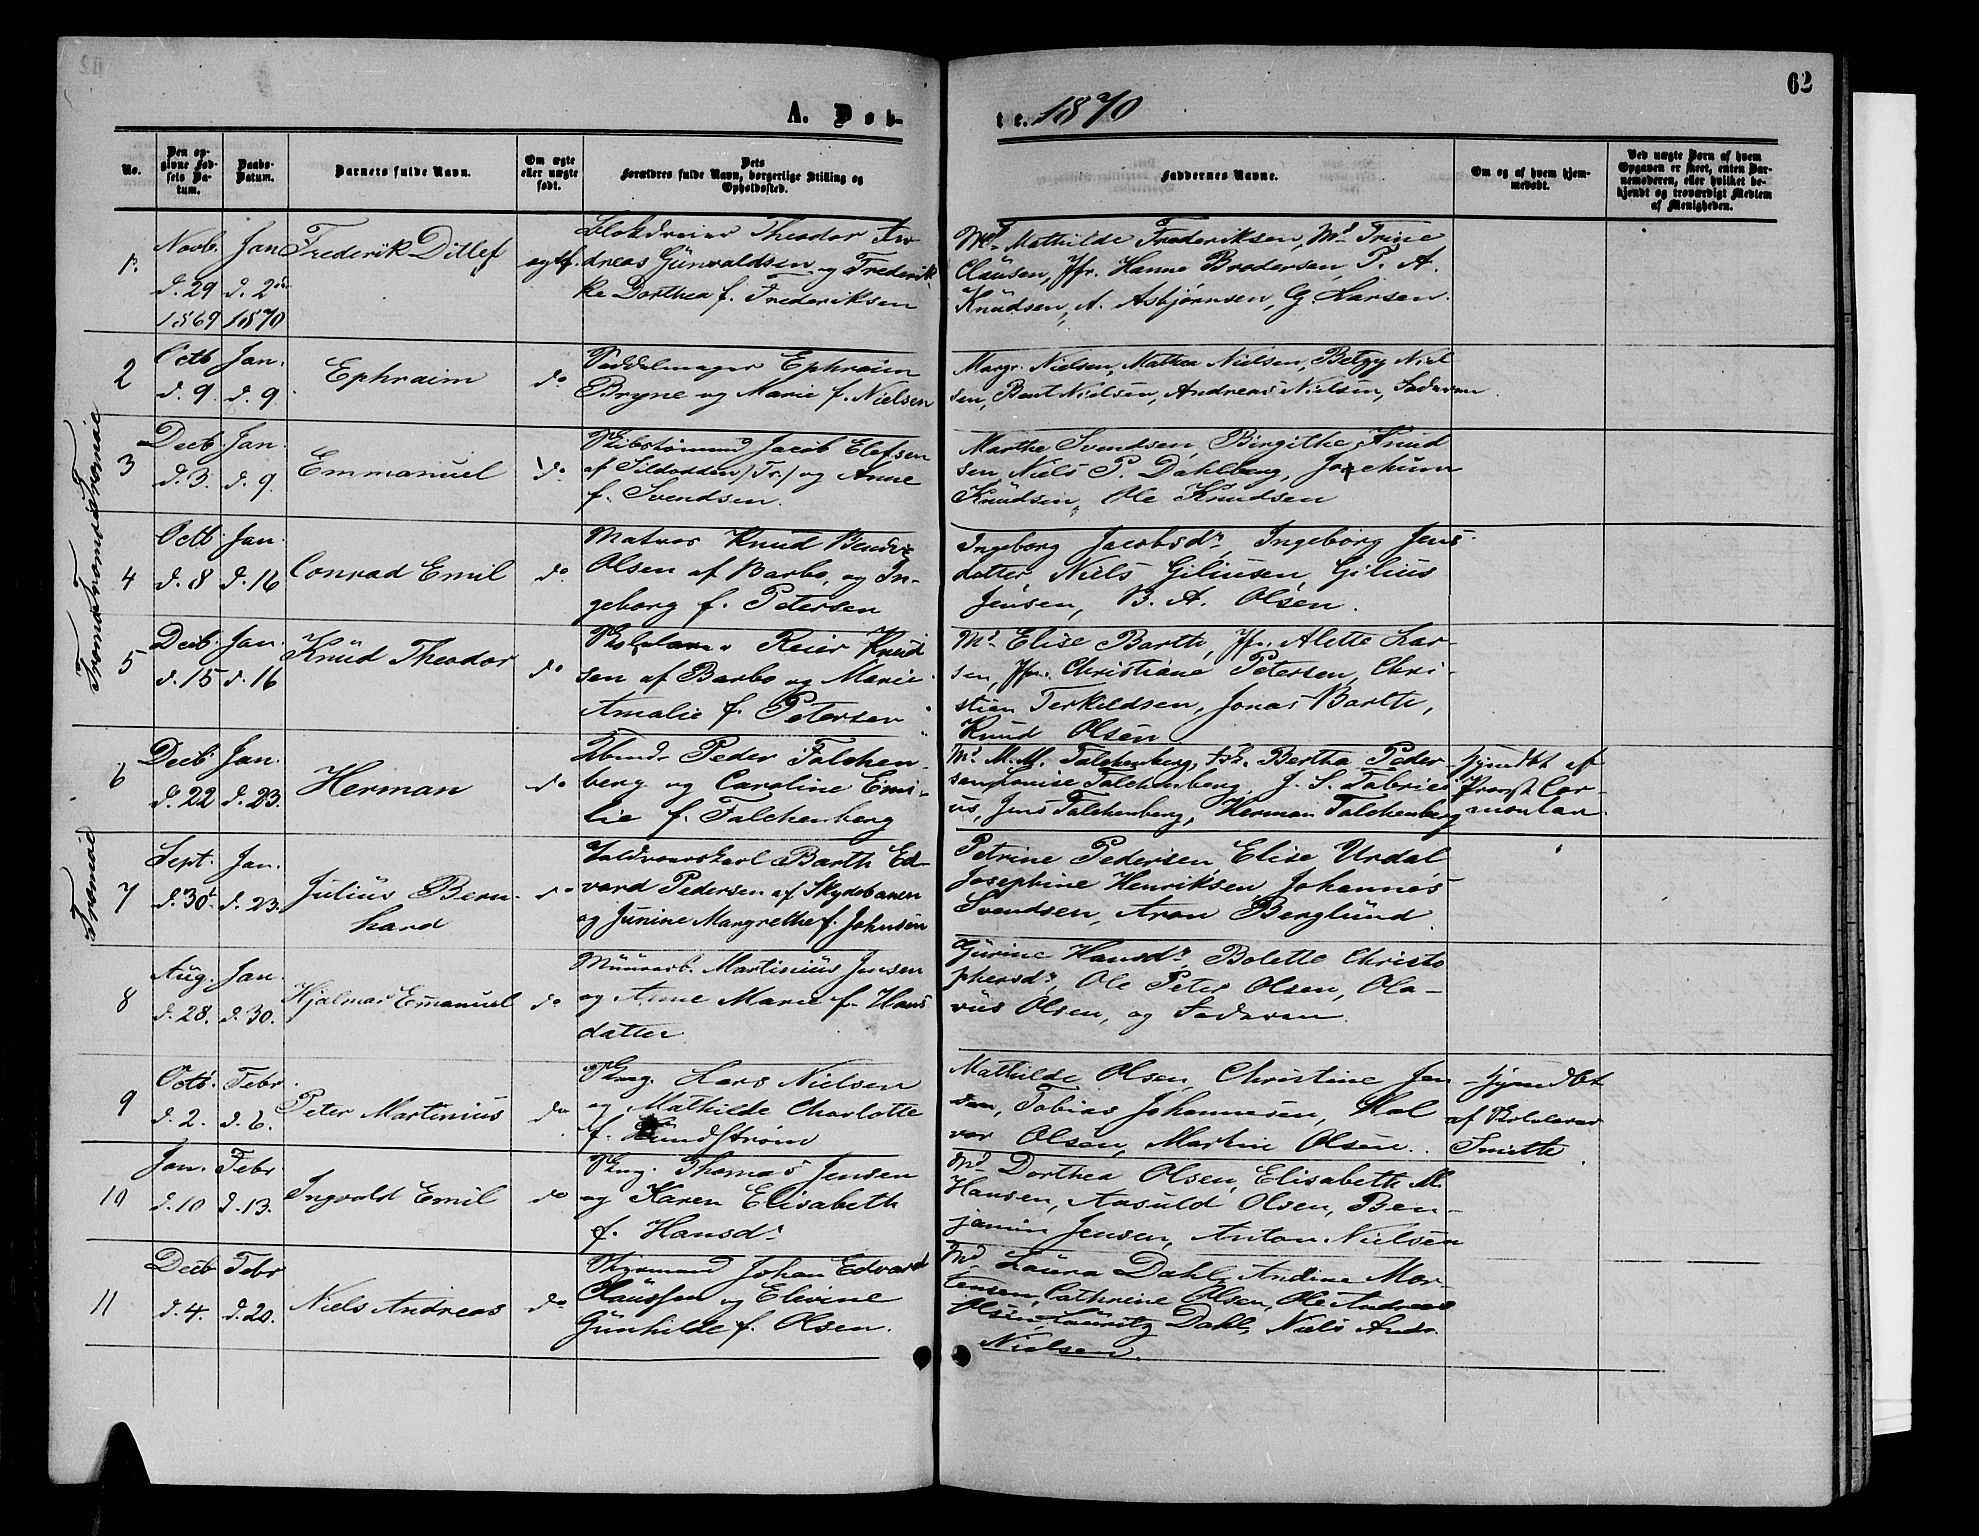 62
A. Døb-
te. 1870
No.
Den op-
givne Fød-
sels Da-
tum.
Daabs-
Datum.
Barnets fulde Navn.
Om ægte
eller uægte
født.
Dets
Forældres fulde Navn, borgerlige Stilling og
Opholdssted.
Faddernes Navne.
Om og af hvem hjem-
medøbt.
Ved uægte Børn af hvem
Opgaven er skeet, enten Bar-
nemoderen, eller hvilket be-
kjendt og troværdigt Medlem
af Menigheden.
1.
Novb.
d. 29
1869
Jan
d. 2
1870
Frederik Ditlef
ægtf.
Blokdreier Theodor An-
dreas Günvaldsen og Frederik-
ke Dorthea f. Frederiksen
Md. Mathilde Frederiksen, Md. Trine
Clausen, Jfr. Hanne Brodersen, P. A.
Knudsen, A. Asbjørnsen, G. Larsen.
2
Octb
d. 9.
Jan.
d. 9.
Ephraim
do
Ephraim
Bryne og Marie f. Nielsen
Margr. Nielsen, Mathea Nielsen, Betzy Niel
sen, Bent Nielsen, Andreas Nielsen, Faderen
3
Decb
d. 3.
Jan.
d. 9.
Emmanuel
do
Skibstømmermd Jacob Elefsen
af Sildodden (Tr.) og Anne
f. Svendsen.
Marthe Svendsen, Birgithe Knud
sen, Niels P. Dahlberg, Jochum
Knudsen, Ole Knudsen
Tromø Tromø Tromøe
4
Octb
d. 8
Jan.
d. 16
Conrad Emil
do
Matros Knud Bendix
Olsen af Barbo, og In-
geborg f. Petersen
Ingeborg Jacobsdr, Ingeborg Jens
datter, Niels Giliusen, Gilius
Jensen, B. A. Olsen.
5
Decb.
d. 15
Jan.
d. 16
Knud Theodor
do
Skolelærer Reier Knud
sen af Barbo og Marie
Amalie f. Petersen
Md. Elise Barth, Jfr. Alette Lar-
sen, Jfr. Christiane Petersen, Chri-
stien Terkeldsen, Jonas Barth,
Knud Olsen
6
Decb
d. 22
Jan.
d. 23.
Herman
do
Peder Falchen-
berg og Caroline Emi-
lie f. Falchenberg
Md. M. M. Falchenberg, Bertha Peder-
sen, Louise Falchenberg, J. S. Fabrici
us, Jens Falchenberg, Herman Falchenberg
hjmdbt af
Provst Cor-
montan.
Tromøe
7
Sept.
d. 30
Jan.
d. 23.
Julius Bern-
hard
do
Barth Ed-
vard Pedersen af Skydebanen
og Junine Margrethe f. Johnsen
Petrine Pedersen, Elise Urdal
Josephine Henriksen, Johannes
Svendsen, Aron Berglund.
8
Aug.
d. 28.
Jan.
d. 30.
Hjalmar Emanuel
do
Muurarb. Martinius Jensen
og Anne Marie f. Hans
datter
Gurine Hansdr, Bolette Christo
phersdr, Ole Peter Olsen, Ola-
vus Olsen, og Faderen.
9
Octb.
d. 2.
Febr.
d. 6.
Peter Martinius
do
Lars Nielsen
og Mathilde Charlotte
f. Kundstrøm
Mathilde Olsen, Christine Jen
sen, Tobias Johannesen, Hal
vor Olsen, Martin Olsen.
hjmdbt
af Skolelærer
Smitte.
10
Jan.
d. 10
Febr
d. 13.
Ingvald Emil
do
Thomas Jensen
og Karen Elisabeth
f. Hansdr.
Md Dorthea Olsen, Elisabeth M.
Hansen, Aasuld Olsen, Ben-
jamin Jensen, Anton Nielsen
11
Decb
d. 4.
Febr
d. 20.
Niels Andreas
do
Styrmand Johan Edvard
Claussen og Elevine
Gunhilde f. Olsen.
Md Laura Dahl, Andine Mor-
tensen, Cathrine Olsen, Ole Andreas
Olsen, Lauritz Dahl, Niels Andr.
Nielsen.